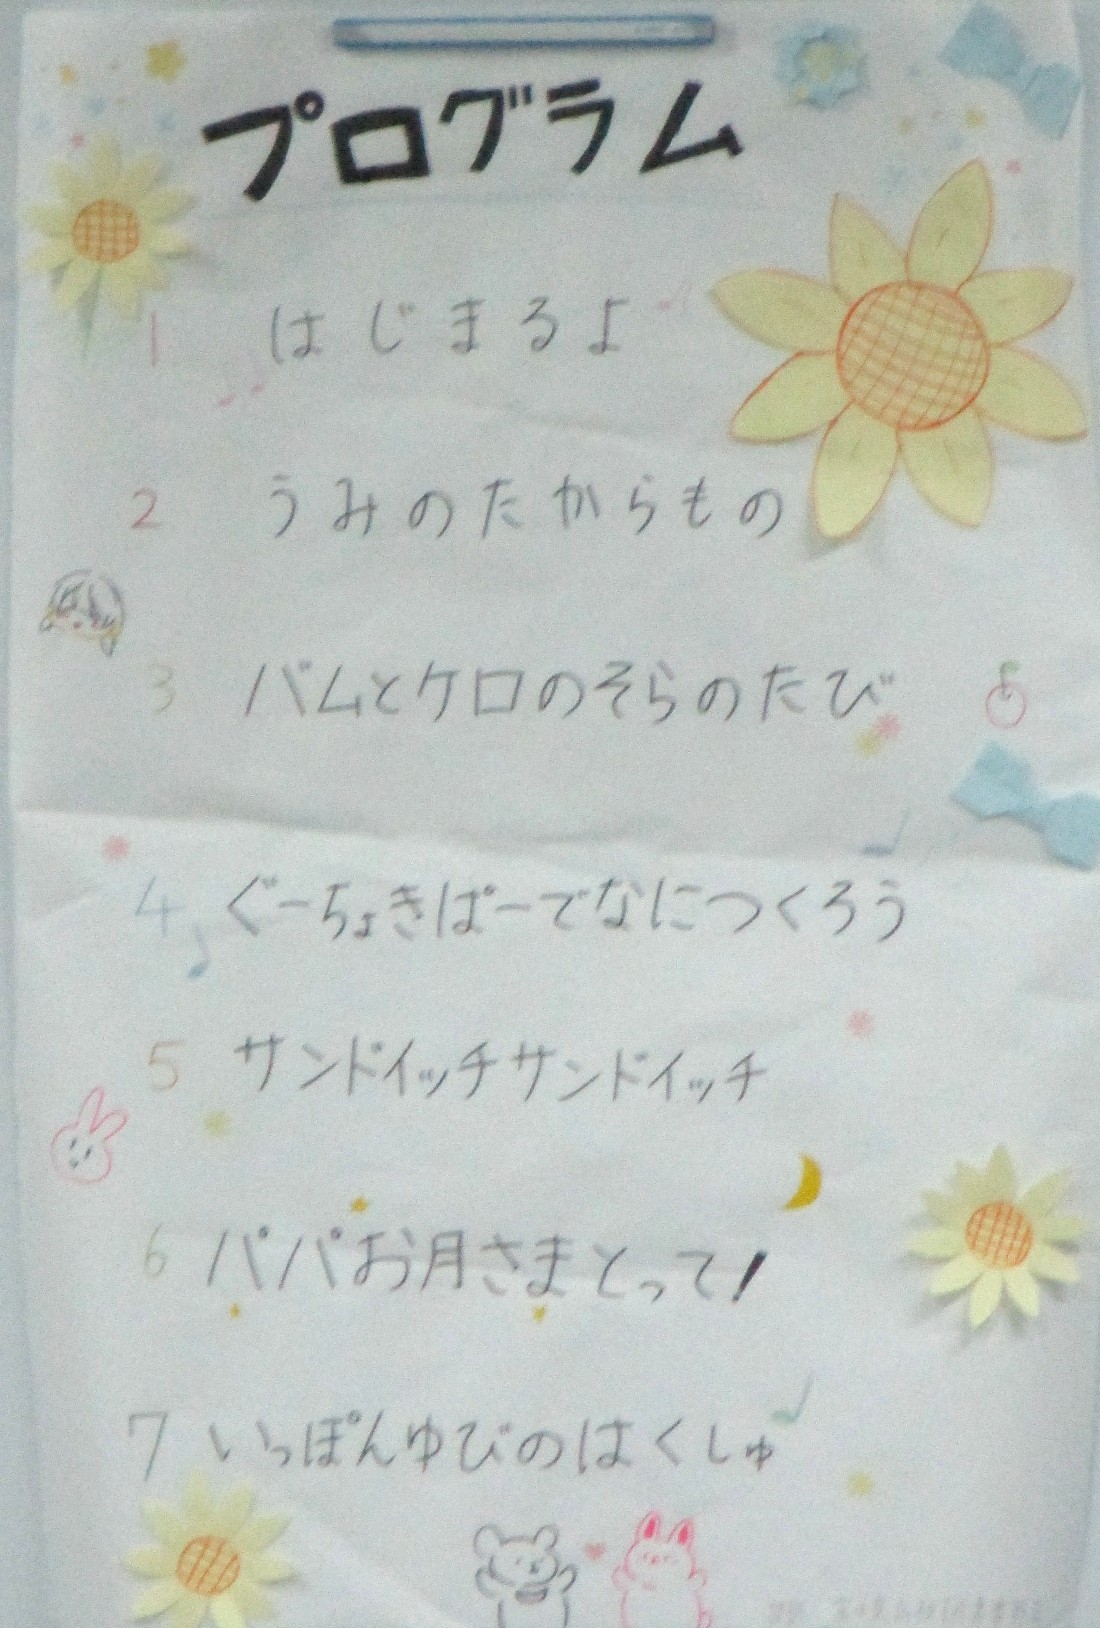 プログラム
1 はじまるよ
2 うみのたからもの
3 バムとケロのそらのたび
4 ぐーちょきぱーでなにつくろう
5 サンドイッチサンドイッチ
6 パパお月さまとって!
7 いっぽんゆびのはくしゅ